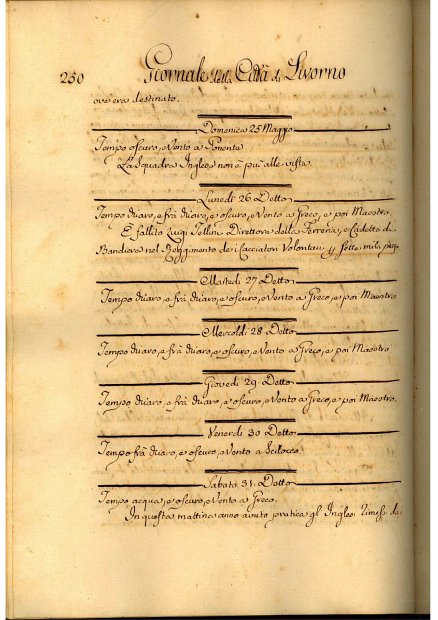 250 Giornale della Città di Livorno
ove era destinato.
Domenica 25 Maggo
Tempo oscuro, e Vento a Ponente
La Squadra Inglese non è più alle vista.
Lunedì 26. Detto
Tempo chiaro, e frà chiaro, e oscuro, e Vento a Greco, e poi Maestro
È fallito Luigi Direttore della Ferreria, e Cadetto di
Bandiera nel Reggimento dei Cacciatori Volontari sette mila pezze
Martedì 27 Detto
Tempo chiaro, e frà chiaro, e oscuro, e Vento a Greco, e poi Maestro
Mercoldì 28 Detto
Tempo chiaro, e frà chiaro, e oscuro, e Vento a Greco, e poi Maestro
Giovedì 29. Detto
Tempo chiaro, e frà chiaro, e oscuro, e Vento a Greco, e poi Maestro.
Venerdì 30 Detto
Tempo frà chiaro, e oscuro, e Vento a Scilocco.
Sabato 31. Detto
Tempo acqua, e oscuro, e Vento a Greco.
In questa mattina anno avuto pratica gl' Inglesi